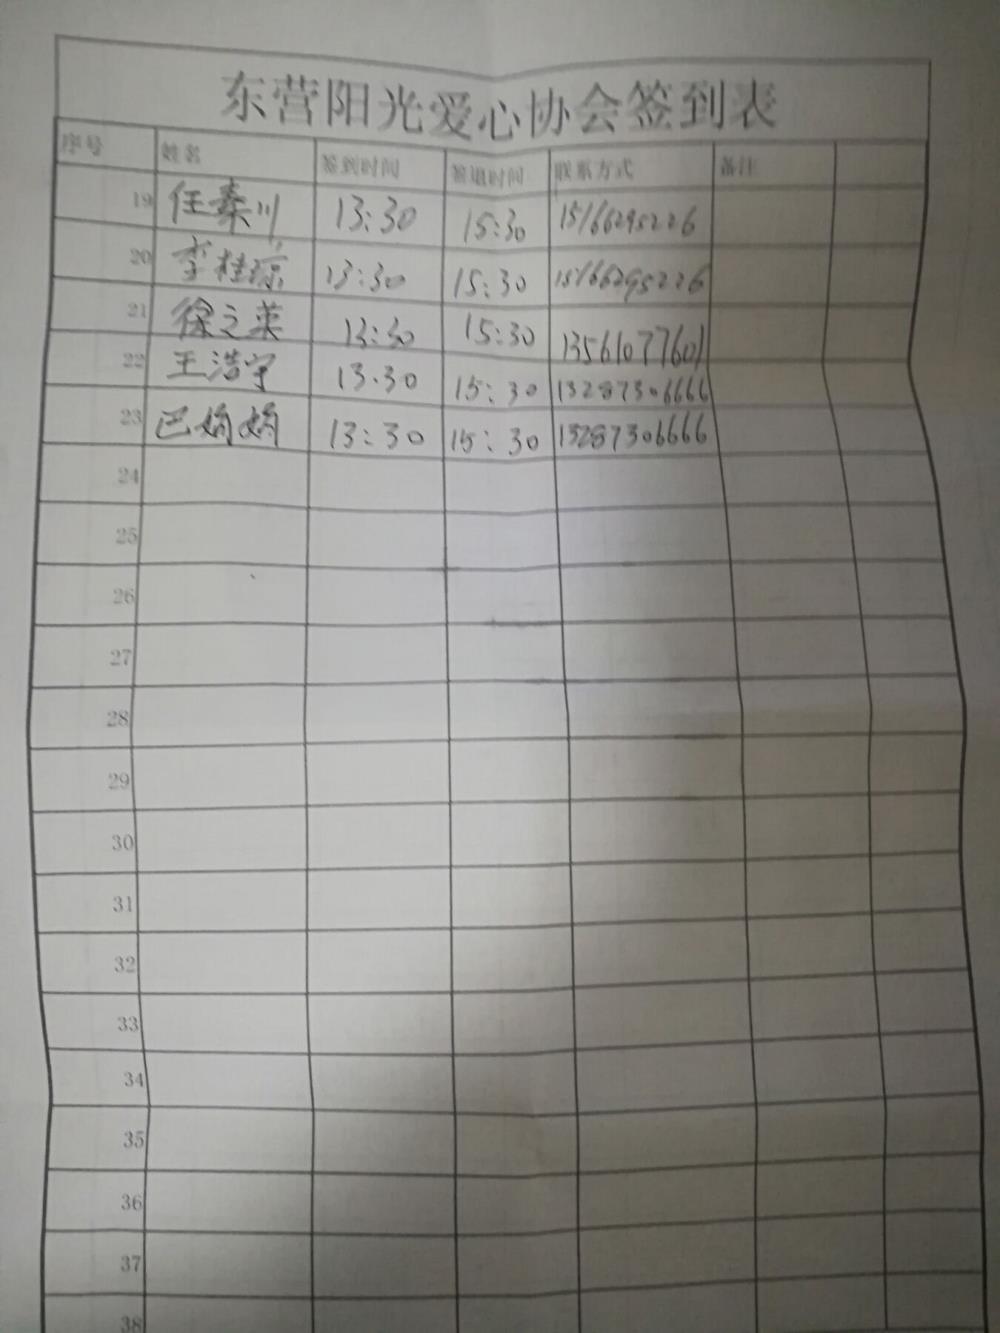 东营阳光爱心协会签到表
序号 姓名 签到时间 签退时间 联系方式 备注
19 任秦川 13:30 15:30 15166295226
20 李桂琼 13:30 15:30 15166295226
21 徐之英 13:30 15:30 13561077601
22 王浩宇 13:30 15:30 13287306666
23 巴娟娟 13:30 15:30 13287306666
24
25
26
27
28
29
30
31
32
33
34
35
36
37
38